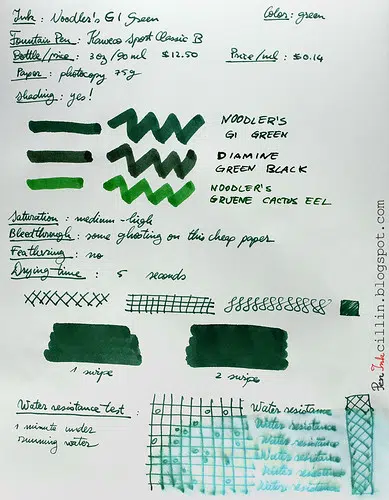 Ink: Noodler's GI Green
Color: green
Fountain Pen: Kaweco Sport Classic B
Bottle/price: 3 oz/90 ml $12.50 Price/ml: $0.14
Paper: photocopy 75g
Shading: yes!
NOODLER'S
GI GREEN
DIAMINE
GREEN BLACK
NOODLER'S
GRUENE CACTUS EEL
Saturation: medium-high
Bleedthrough: some ghosting on this cheap paper
Feathering: no
Drying-time: 5 seconds
1 swipe
2 swipe
Water resistance test:
1 minute under
running water
Water resistance
Water resistance
Water resistance
Water resistance
Water resistance
Water resistance
Pen Ink cillin.blogspot.com